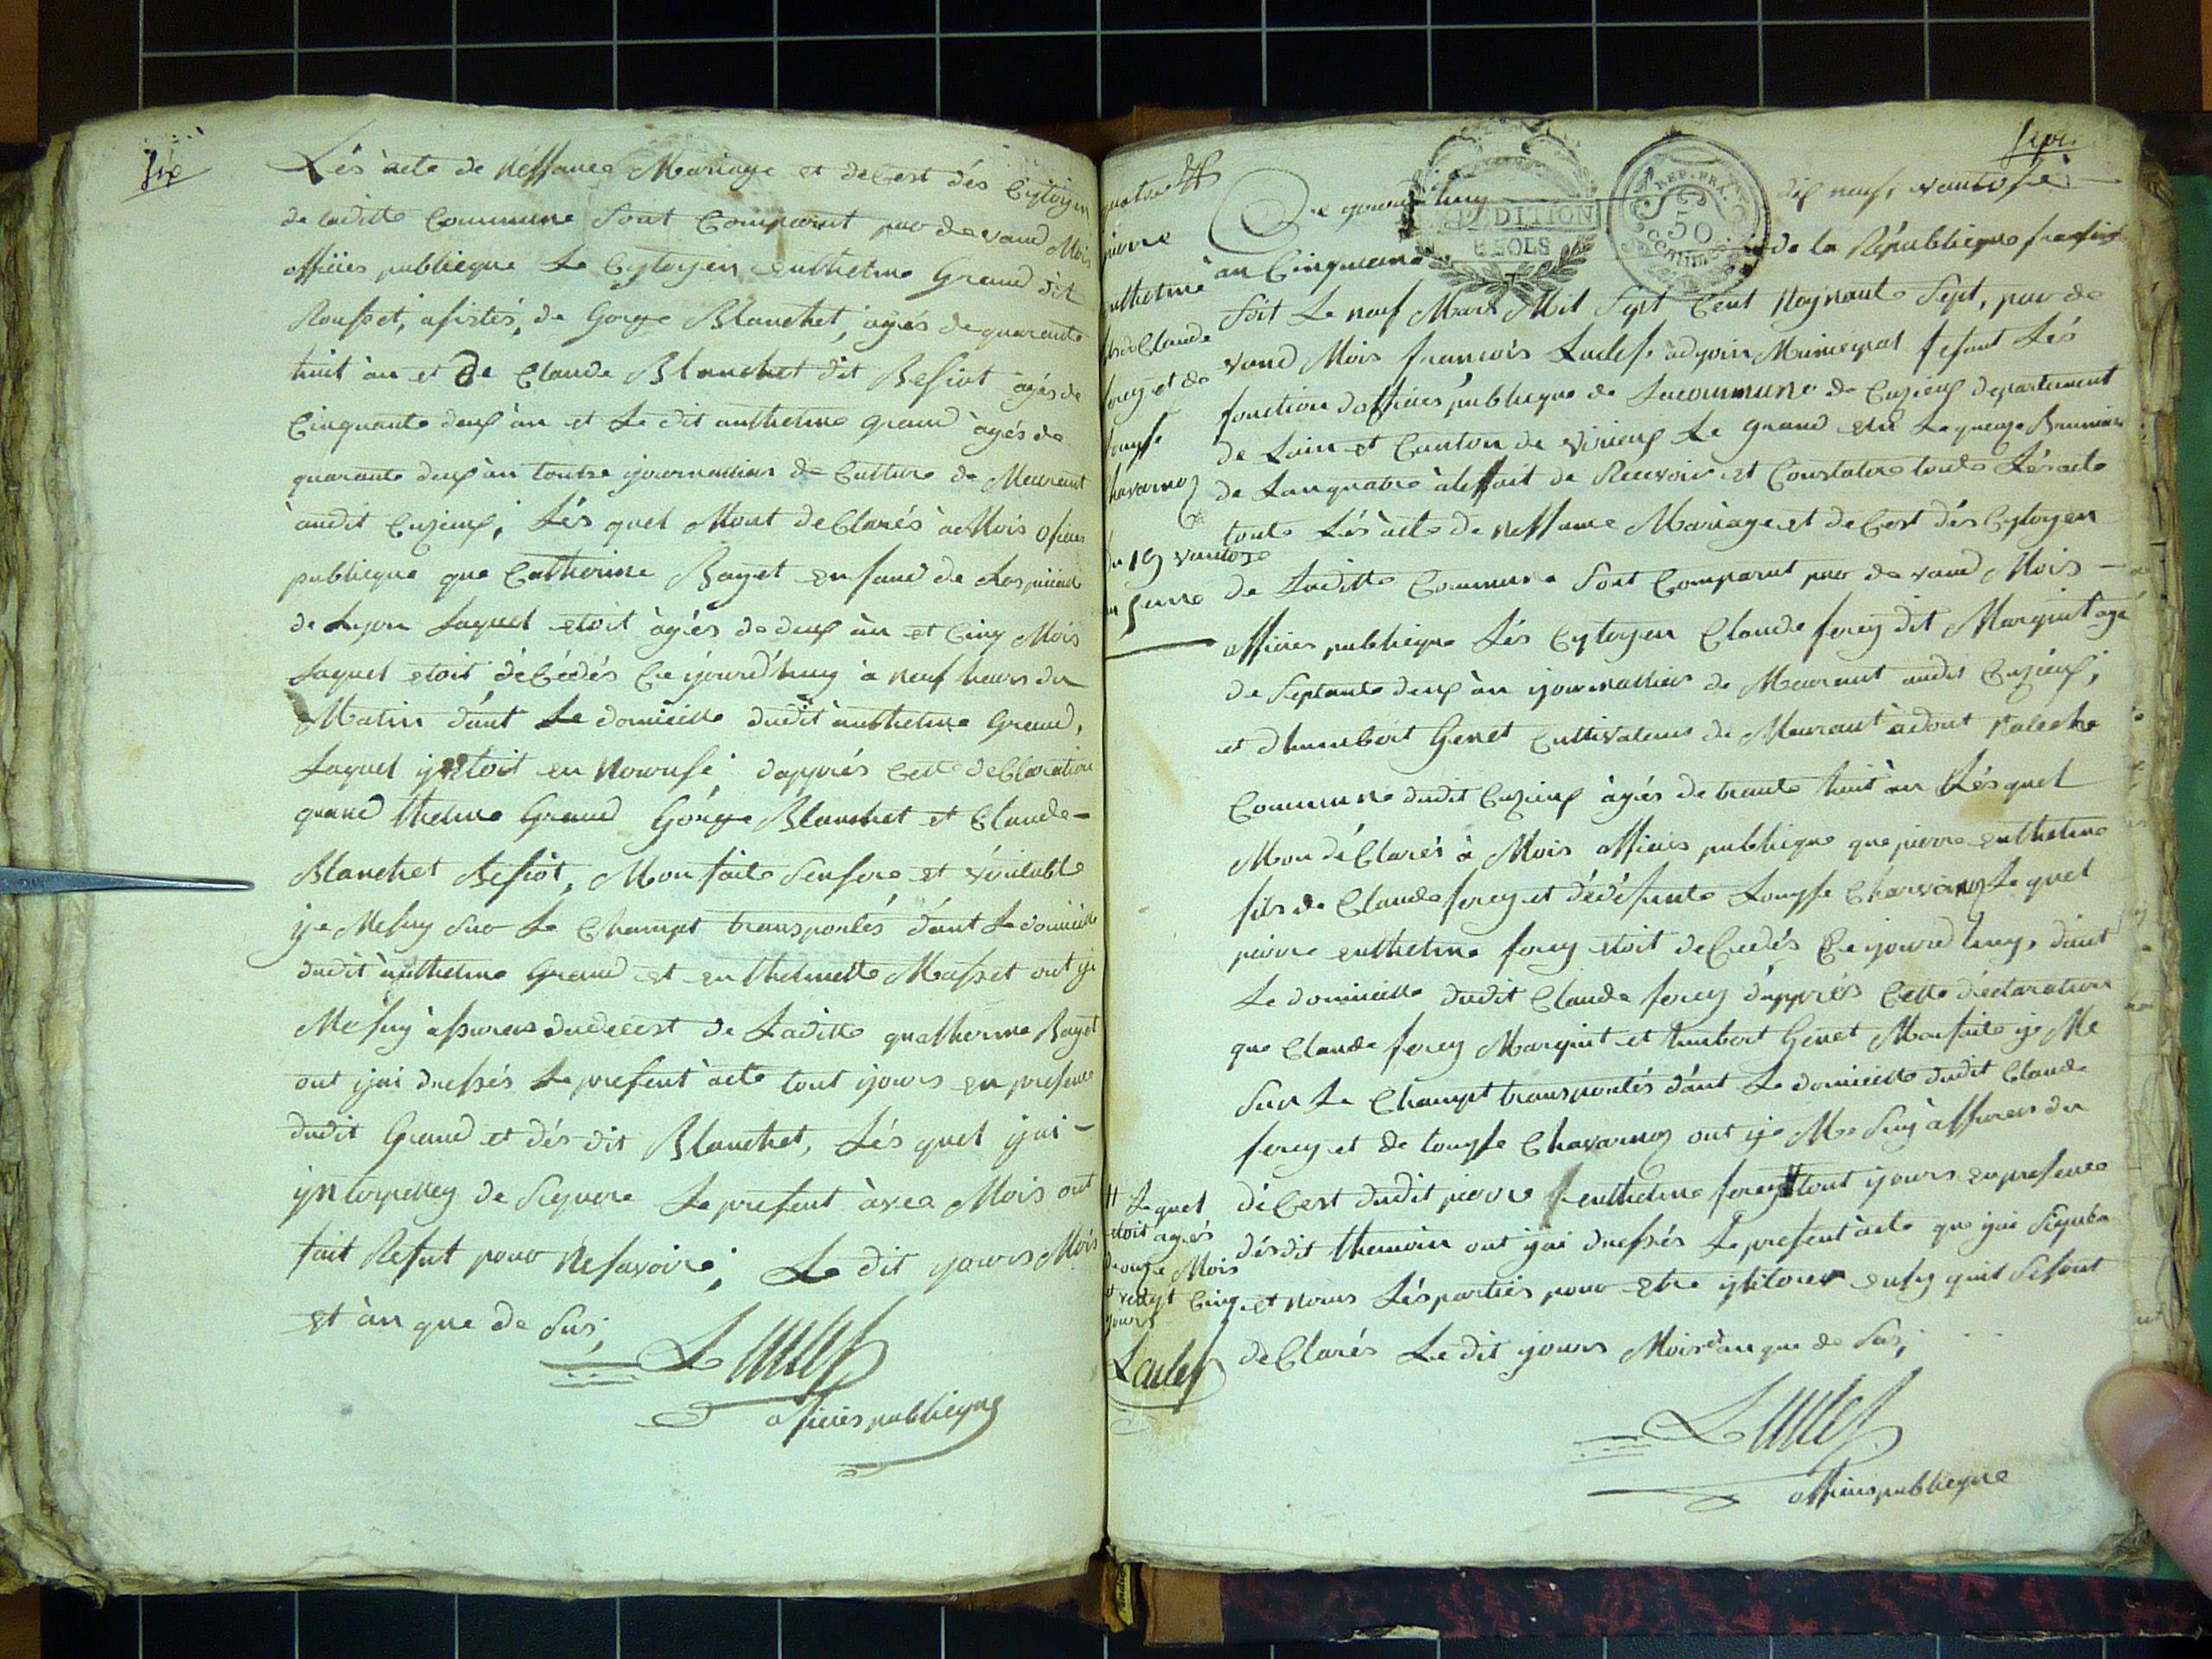 six
Lés àcte de néssance Mariage et décest dés Cytoyen
de laditte Commune sont Comparut par devand Mois
officies publicque Le Cytoyen enthelme Grand dit
Rousset, assistés, de Gorge Blanchet, agiés de quarante
huit àn et De Claude Blanchet dit Besiot agés de
Cinquante deux àn et Le dit anthelme grand àgés de
quarante deux àn toutse ijournallier de Culture de Meurant
àudit Cuzieux; Lés quel Mont déClarés à Mois oficies
publicque que Catherine Bayet enfand de Lospieial
de Lyon Laquel etoit àgiés de deux àn et Cinq Mois
Laquel etoit déCédés Ce ijourd'huy à neuf heurs du
Matin dant Le domicille dudit anthelme Grand,
Laquel ij etoit en Nourise; dapprés Cette déClaration
quand thelme Grand Gorge Blanchet et Claude-
Blanchet Besiôt, Mon faite Sensere et véritable
ije Mesuy sur Le Champt transportés dant Le domicille
dudit ànthelme Grand et enthelmette Masset out ije
Mésuy àssurers dudecest de Laditte quatherine Bayet
out ijai dressés Le present àcte tout ijours en presence
dudit Grand et dés dit Blanchet, Lés quel ijai-
ijnterpelley de Signere Le present àvec Mois ont
fait Refut pour Nesavoire; Le dit ijours Mois
et àn que de Sus;
Laulef
officies publicque
sept
quatre
pierre
enthelme
fils de Claude
forey et de
Louysse
Chavarnoz
du 19 vantose
an 5eme
Ce ijourd'huy dix neuf vantose
àn Cinquieme de la Républicque fransise
Soit Le neuf Mars Mil Sept Cent Noynante Sept, par de
vand Mois francois Laulef àdjoin Municipal fesant Lés
fonction dofficiés publicque de Lacommune de Cuzieux departement
de Lain et Canton de Virieux Le grand elu Lequenze Brumaire
de Lanquatre àleffait de Recevoir et Constatere toute Lésacte
toute Lés àcte de néssance Mariage et decest dés Cytoyen
de Laditte Commune Sont Comparut par de vand Mois -
officies publicque Lés Cytoyen Claude forey dit Marquit agé
de Septante deux àn ijournallier de Meurant audit Cuzieux;
et dhumbert Genet Cultivateur de Meurant àdont
Commune dudit Cuzieux àgiés de trante huit àn Lésquel
Mon déClarés à Mois officies publicque que pierre enthelme
fils de Claude forey et dédéfunte Louysse Chavarnoz Le quel
pierre enthelme forey etoit deCedés Ce ijourd huy dant
Le domicille dudit Claude forey dapprés Cette déclaration
que Claude forey Marquit et humbert Genet Mon faite ije Me
Sur Le Champt transportés dant Le domicille dudit Claude
forey et de Louysse Chavarnoz out ije Me Suy àssurers du
déCest dudit pierre enthelme forey # tout ijours en presence
dés dit themoin out ijai dressés Le present àcte que ijai Signée
et nons Lésparties pour etre ensy quil Sesont
deClarés Le dit ijours Mois et an que de Sus;
# Le quel
etoit agiés
de onze Mois
et vengt Cinq
ijours
Laulef
Laulef
officies publicque
EXPEDITION
6 SOLS
REP. FRA.
50
Centimes